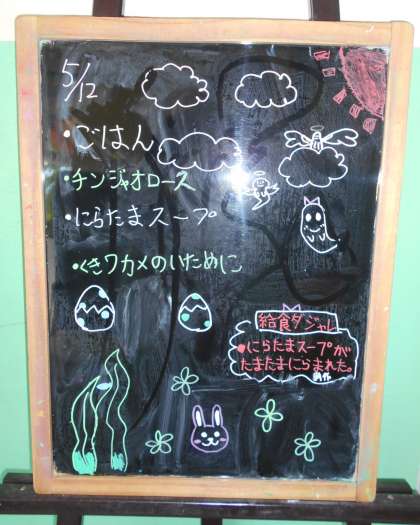 5/12
・ごはん
・チンジャオロース
・にらたまスープ
・くきワカメのいために
給食ダジャレ
・にらたまスープが
たまたまにらまれた。